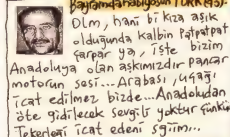 Olm, hani bi kıza aşık
olduğunda kalbin patpatpat
çarpar ya, işte bizim
Anadoluya olan aşkımızdır pancar
motorun sesi... Arabası, uçağı
icat edilmez bizde... Anadoludan
öte gidilecek sevgili yoktur çünkü
Tekerleği icat edeni sgiim...